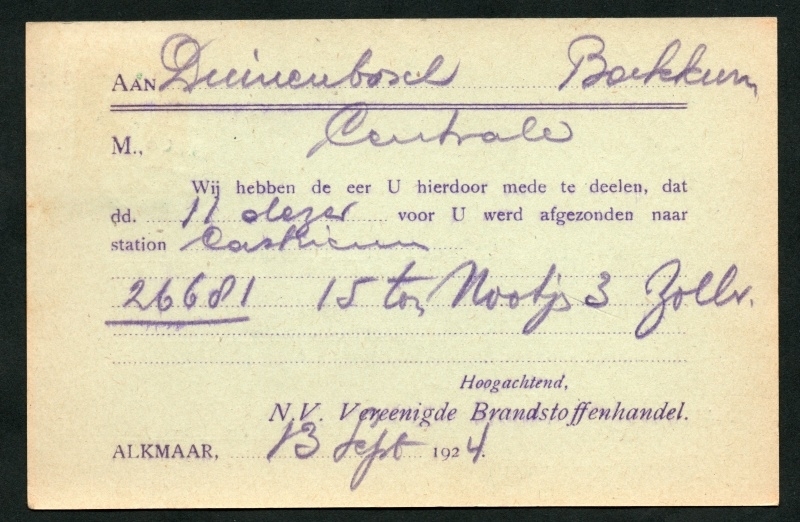 AAN Duinenbosch Bakkum
Centrale
M.,
Wij hebben de eer U hierdoor mede te deelen, dat
dd. 11 dezer voor U werd afgezonden naar
station Castricum
26681 15 ton Nootjs 3 Zollv.
Hoogachtend,
N.V. Vereenigde Brandstoffenhandel.
ALKMAAR, 13 Sept 1924.